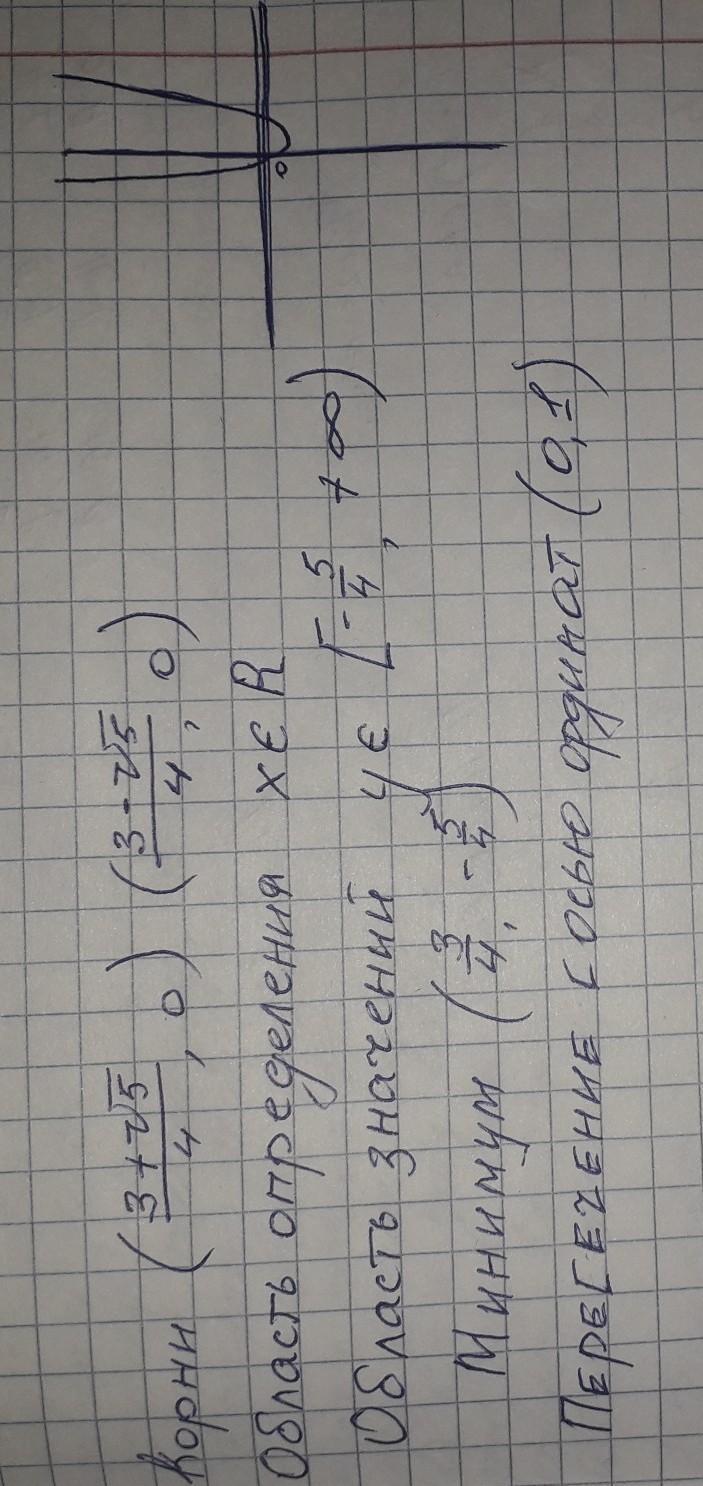 Корни ((3+√5)/4, 0) ((3-√5)/4, 0)
Область определения x∈R
Область значений y∈ [-5/4, +∞)
Минимум (3/4, -5/4)
Пересечение с осью ординат (0,1)
0